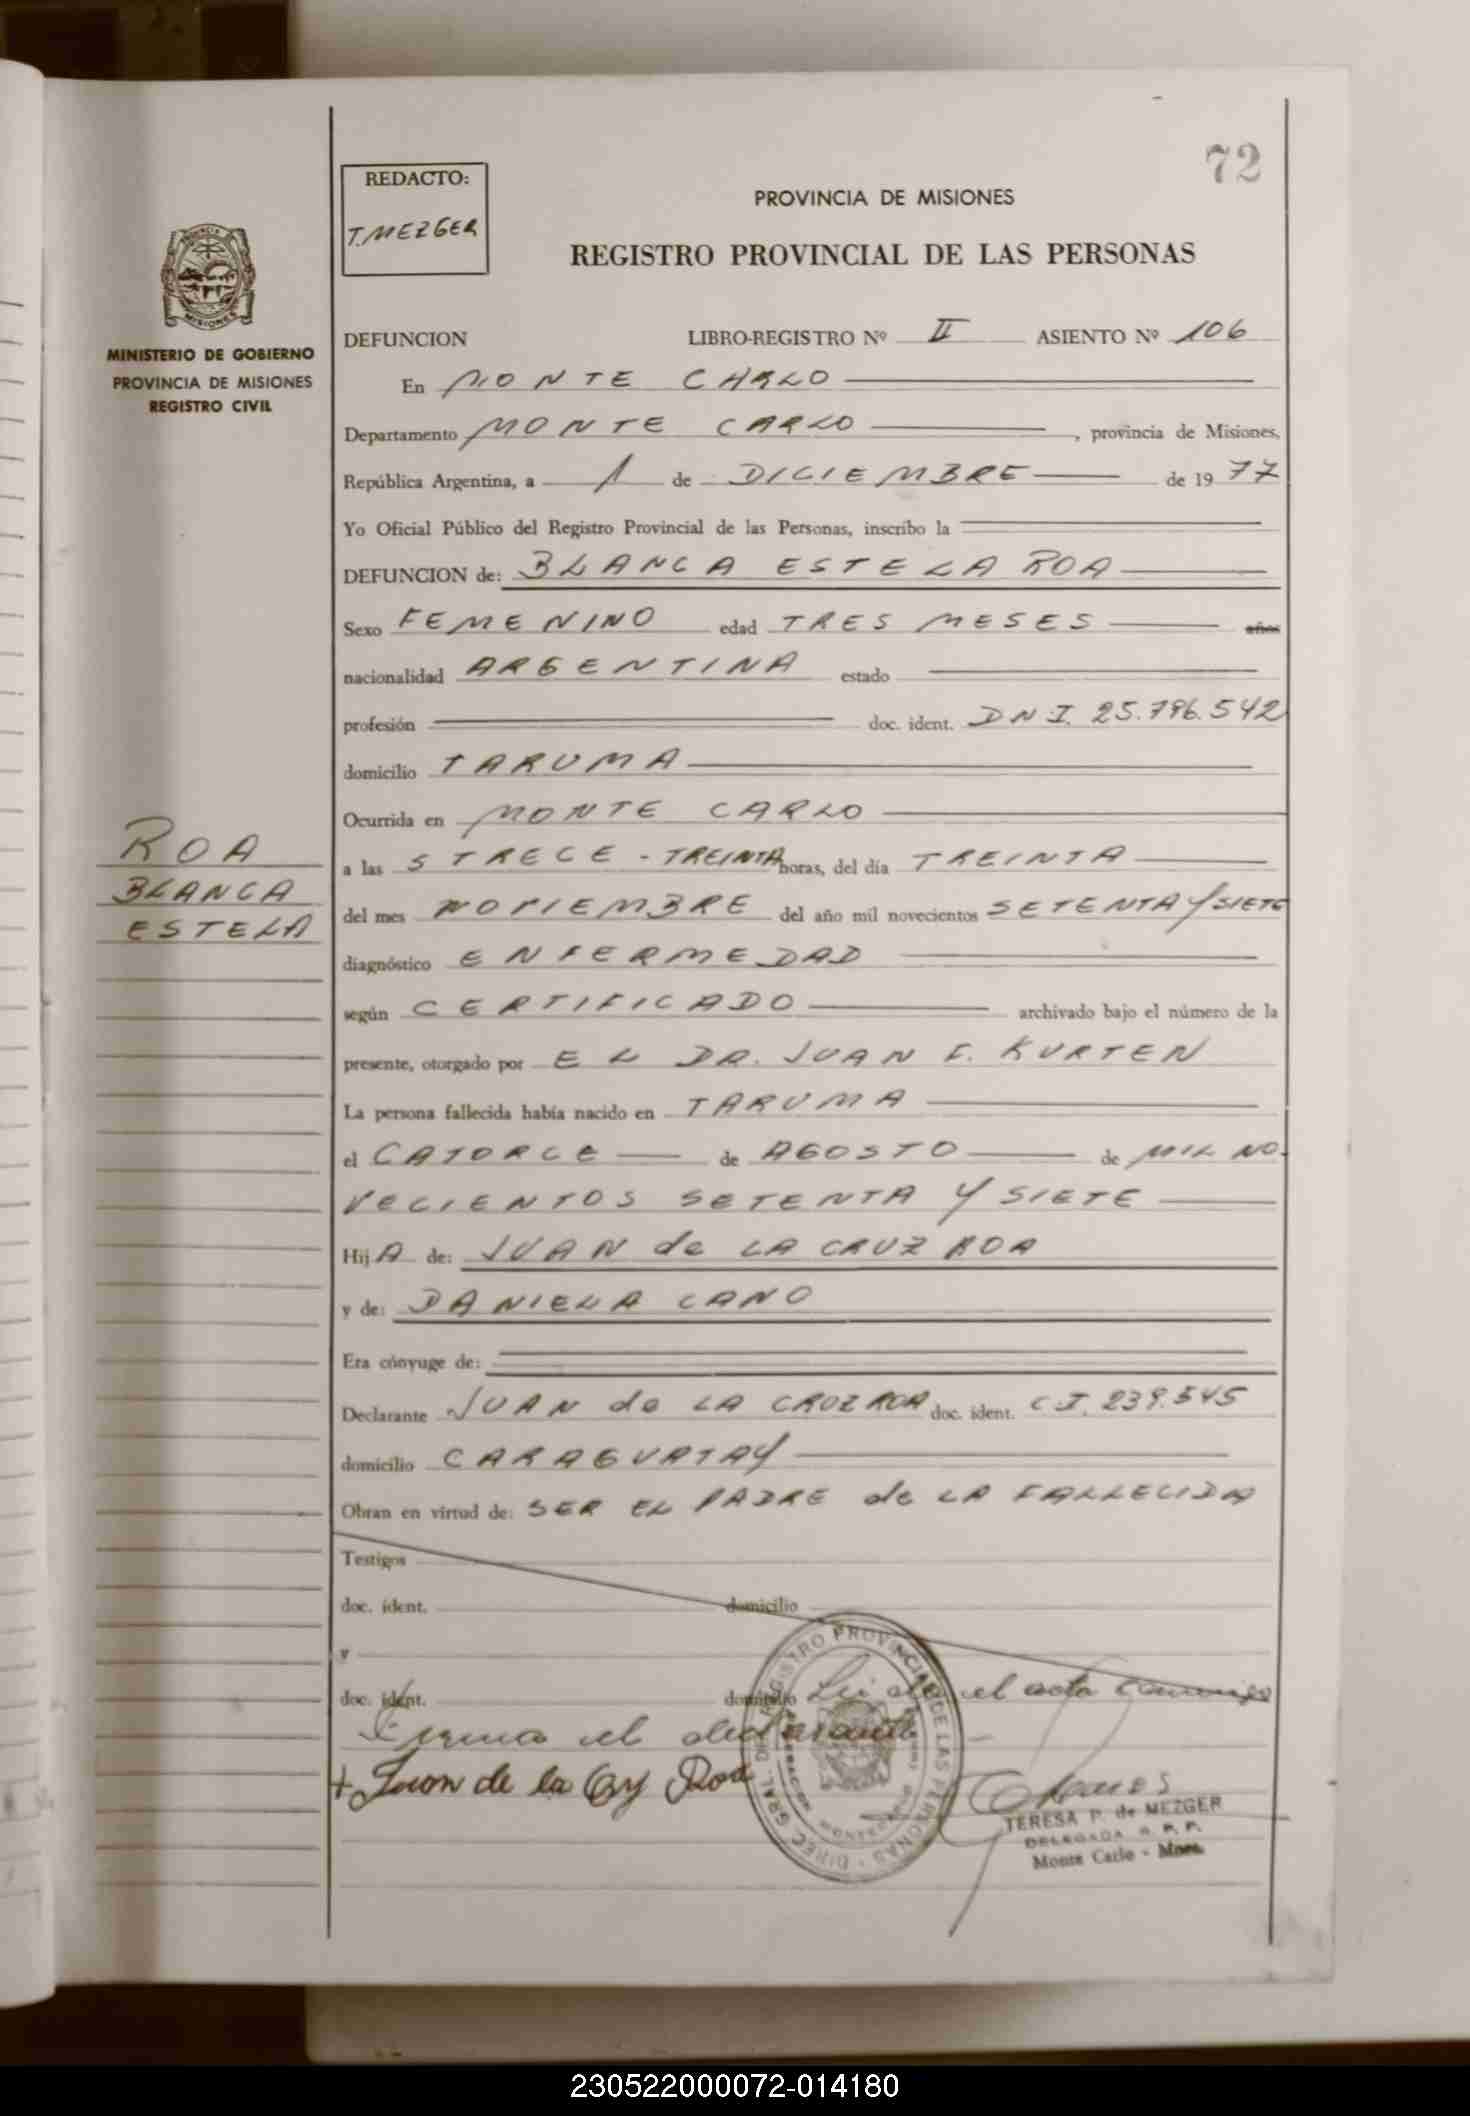 72
REDACTO:
T. MEZGER
PROVINCIA DE MISIONES
REGISTRO PROVINCIAL DE LAS PERSONAS
MISIONES
MINISTERIO DE GOBIERNO
PROVINCIA DE MISIONES
REGISTRO CIVIL
DEFUNCION LIBRO-REGISTRO Nº II ASIENTO Nº 106
En MONTE CARLO
Departamento MONTE CARLO, provincia de Misiones,
República Argentina, a 1 de DICIEMBRE de 1977
Yo Oficial Público del Registro Provincial de las Personas, inscribo la
DEFUNCION de: BLANCA ESTELA ROA
Sexo FEMENINO edad TRES MESES años
nacionalidad ARGENTINA estado
profesión doc. ident. D.N.I. 25.796.542
domicilio TARUMA
Ocurrida en MONTE CARLO
a las S TRECE - TREINTA horas, del día TREINTA
del mes NOVIEMBRE del año mil novecientos SETENTA Y SIETE
diagnóstico ENFERMEDAD
según CERTIFICADO archivado bajo el número de la
presente, otorgado por EL DR. JUAN F. KURTEN
La persona fallecida había nacido en TARUMA
el CATORCE de AGOSTO de MIL NO-
VECIENTOS SETENTA Y SIETE
Hij A de: JUAN de LA CRUZ ROA
y de: DANIELA CANO
Era cónyuge de:
Declarante JUAN de LA CRUZ ROA doc. ident. C.I. 239.545
domicilio CARAGUATAY
Obran en virtud de: SER EL PADRE de LA FALLECIDA
Testigos
doc. ident. domicilio
y
doc. ident. domicilio el acta
Firma el declarante
+ Juan de la Roa
ROA
BLANCA
ESTELA
DIREC. GRAL. DEL REGISTRO PROVINCIAL DE LAS PERSONAS
TERESA P. de MEZGER
DELEGADA R. P. P.
Monte Carlo - Mnes.
230522000072-014180